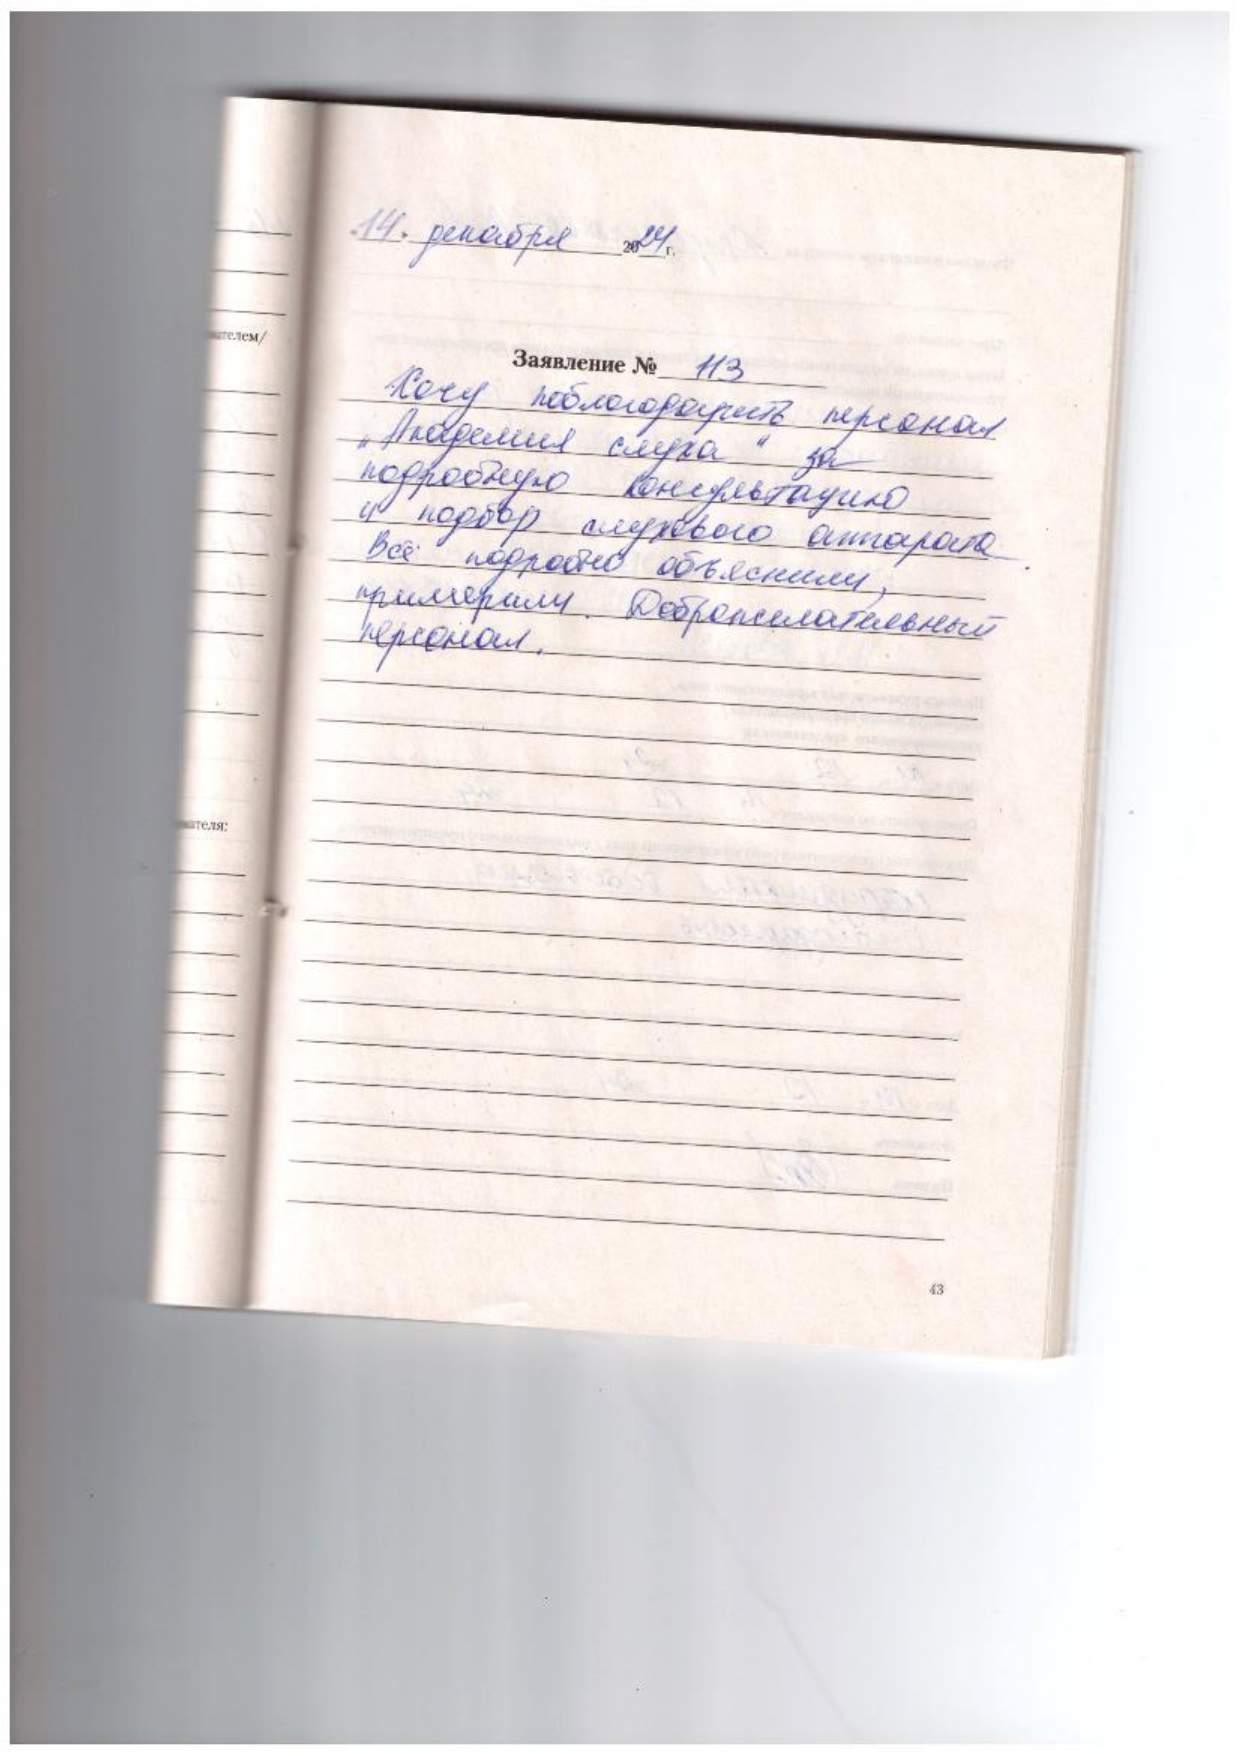 14. декабря 2024 г.
Заявление № 113
Хочу поблагодарить персонал
"Академия слуха" за
подробную консультацию
и подбор слухового аппарата.
Всё подробно объяснили,
примерили. Доброжелательный
персонал.
ателем/
ателя:
43